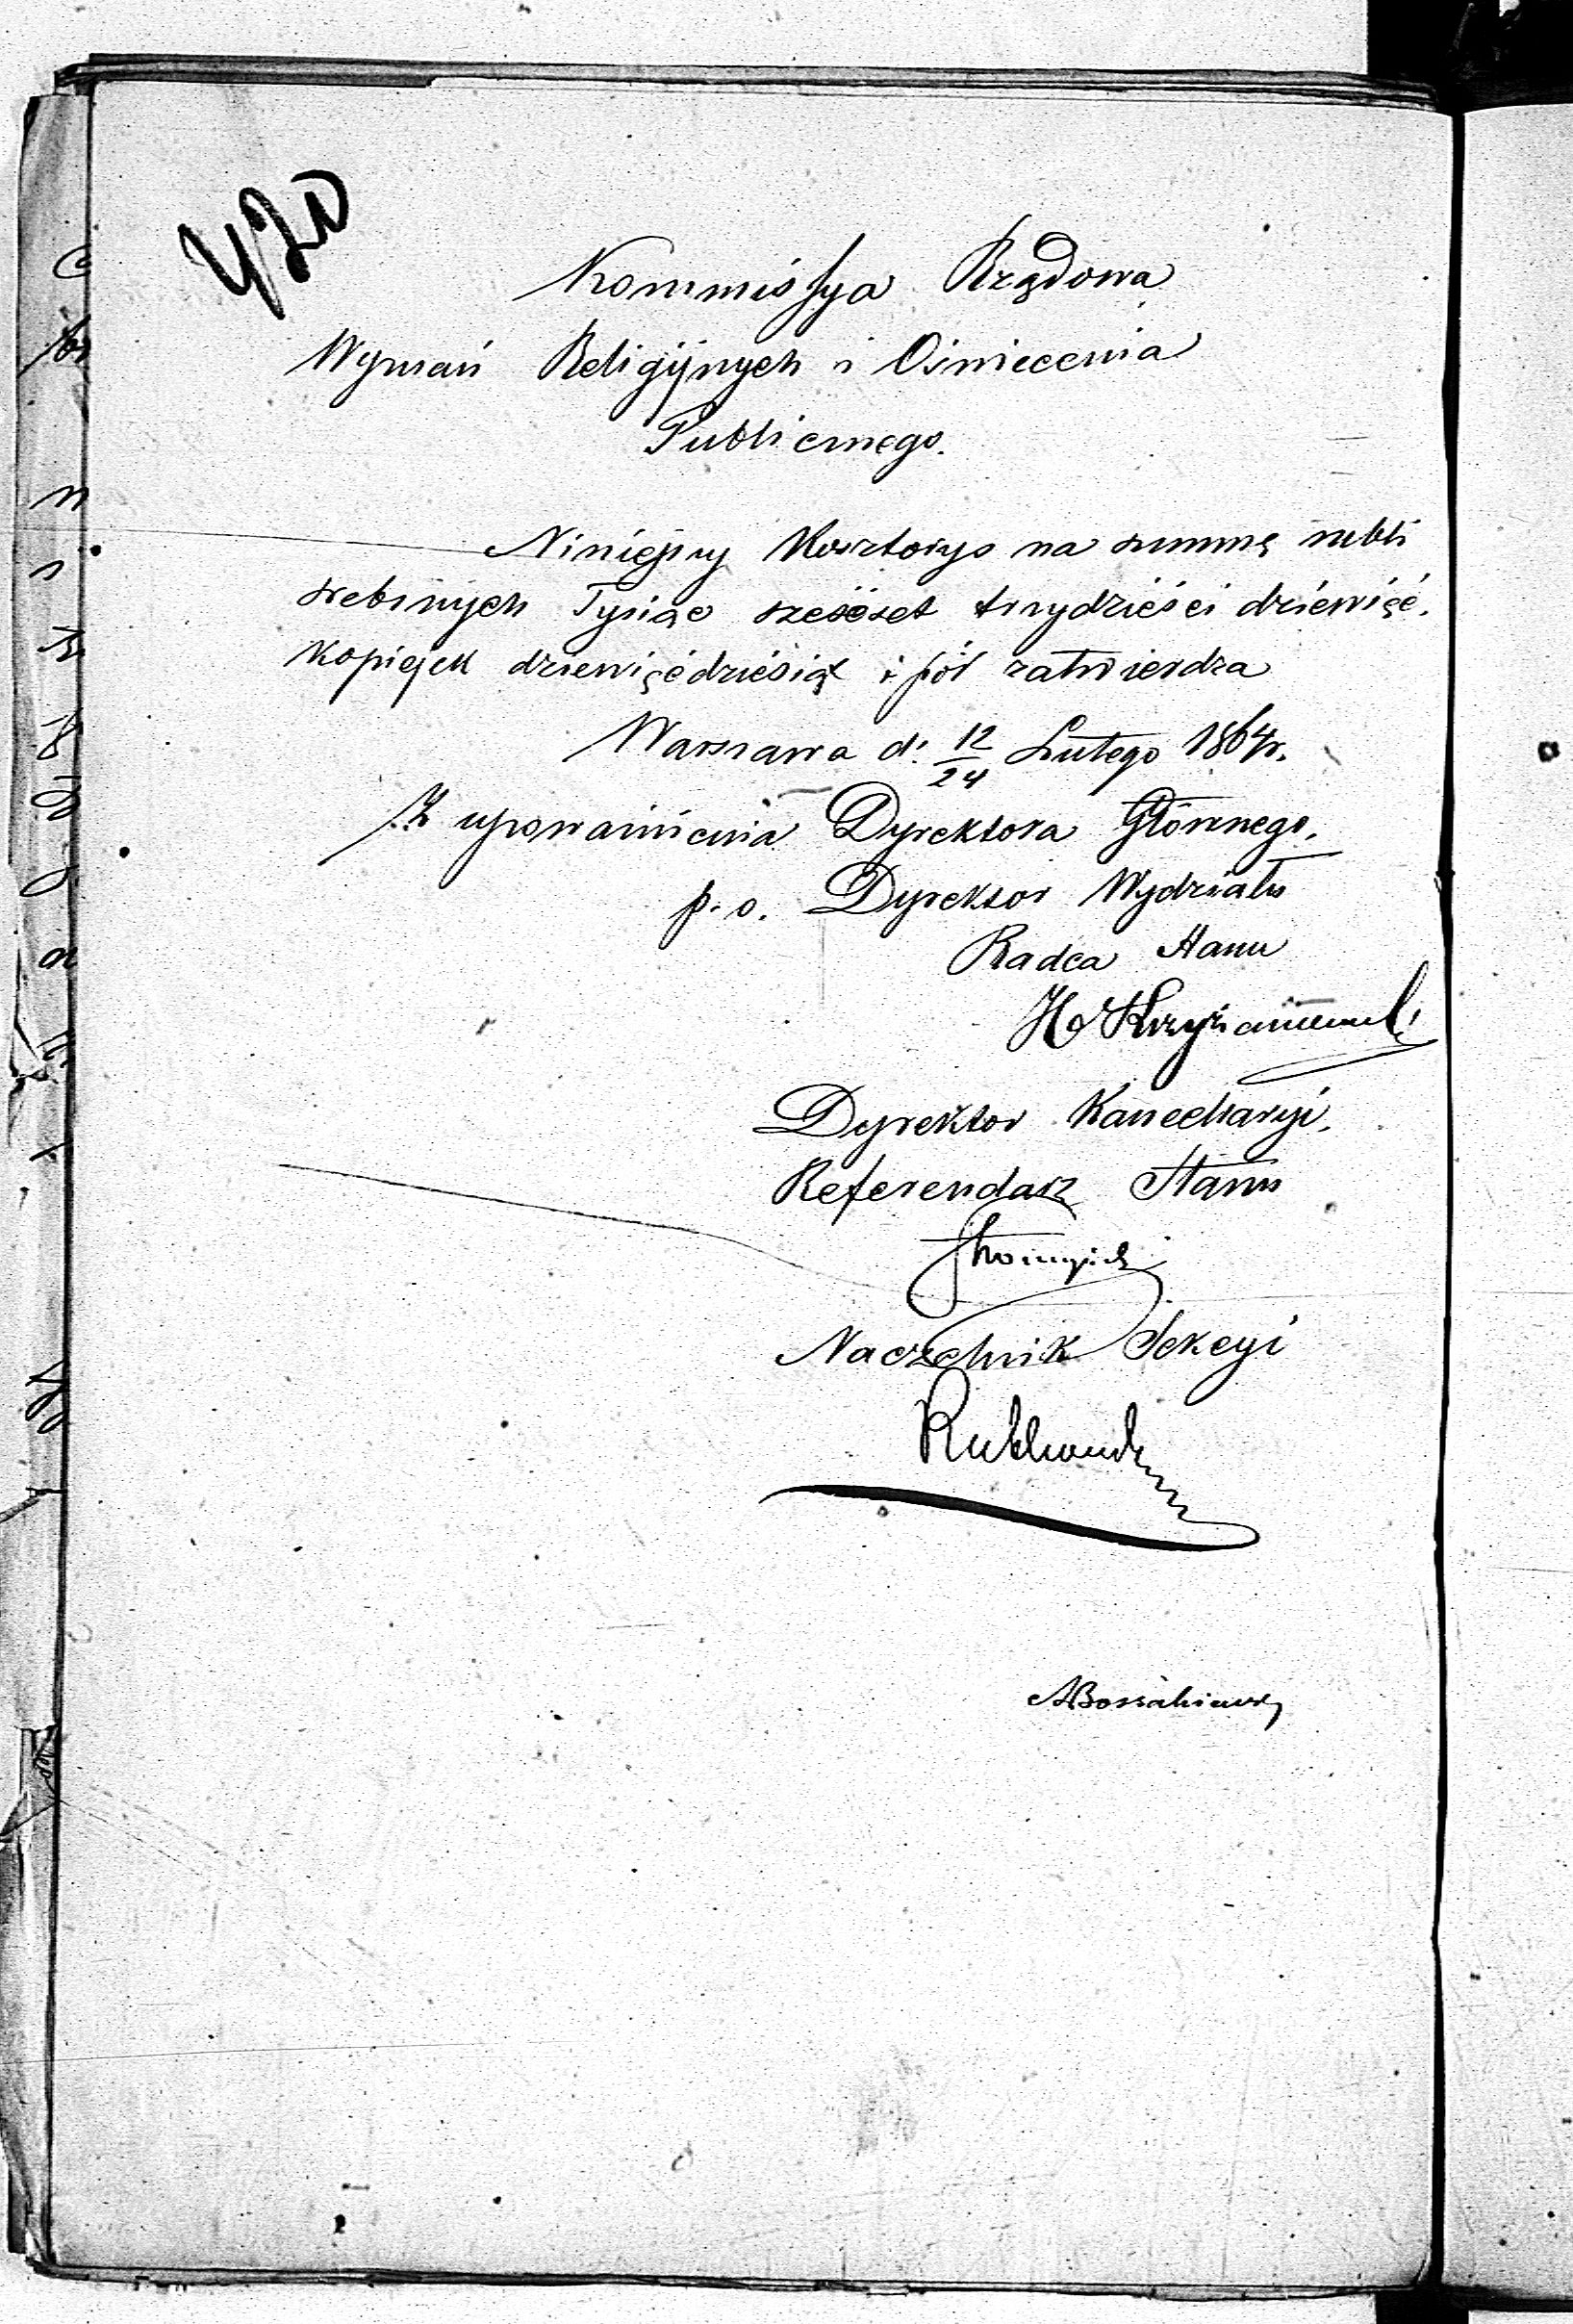 420
Kommissya Rządowa
Wyznań Religijnych i Oświecenia
Publicznego.
Niniejszy Kosztorys na summę rubli
srebrnych Tysiąc sześćset trzydzieści dziewięć.
Kopiejek dziewięćdziesiąt i pół zatwierdza
Warszawa d. 12/24 Lutego 1864 r.
Z upoważnienia Dyrektora Głównego.
p. o. Dyrektor Wydziału
Radca Stanu
H Krzyżanowski
Dyrektor Kancellaryi.
Referendarz Stanu
Naczelnik Sekcyi